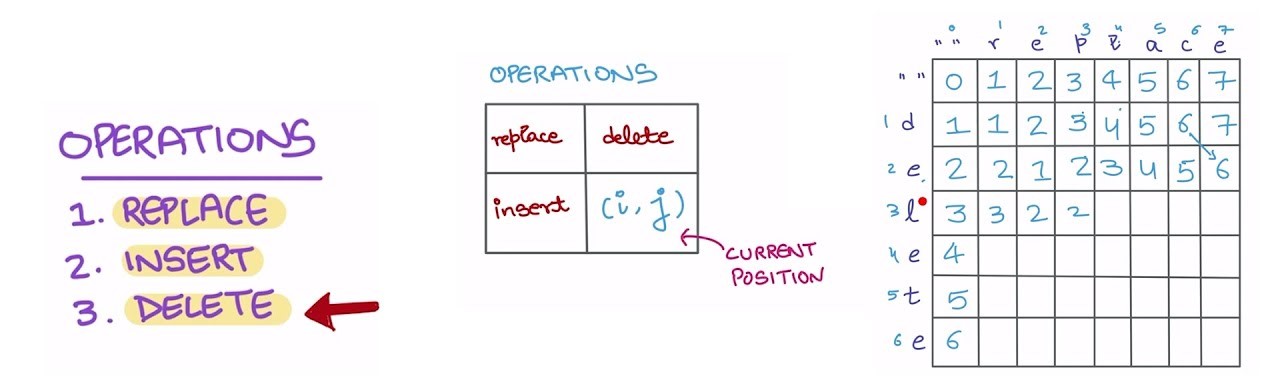 OPERATIONS
1. REPLACE
2. INSERT
3. DELETE
OPERATIONS
replace delete
insert (i, j)
CURRENT
POSITION
0 1 2 3 4 5 6 7
" " r e p l a c e
" " 0 1 2 3 4 5 6 7
1 d 1 1 2 3 4 5 6 7
2 e 2 2 1 2 3 4 5 6
3 l 3 3 2 2
4 e 4
5 t 5
6 e 6